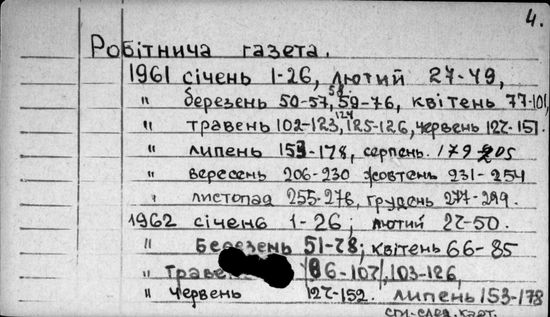 4.
Робітнича газета.
1961 січень 1-26, лютий 27-49,
" березень 50-57, 58, 59-76, квітень 77-101,
" травень 102-123, 124, 125-126, червень 127-151.
" липень 153-178, серпень. 179-205
" вересень 206-230 жовтень 231-254
" листопад 255-276, грудень 277-299.
1962 січень 1-26; лютий 27-50.
" Березень 51-78; квітень 66-85
" Травень 86-102, 103-126,
" Червень 127-152. липень 153-178